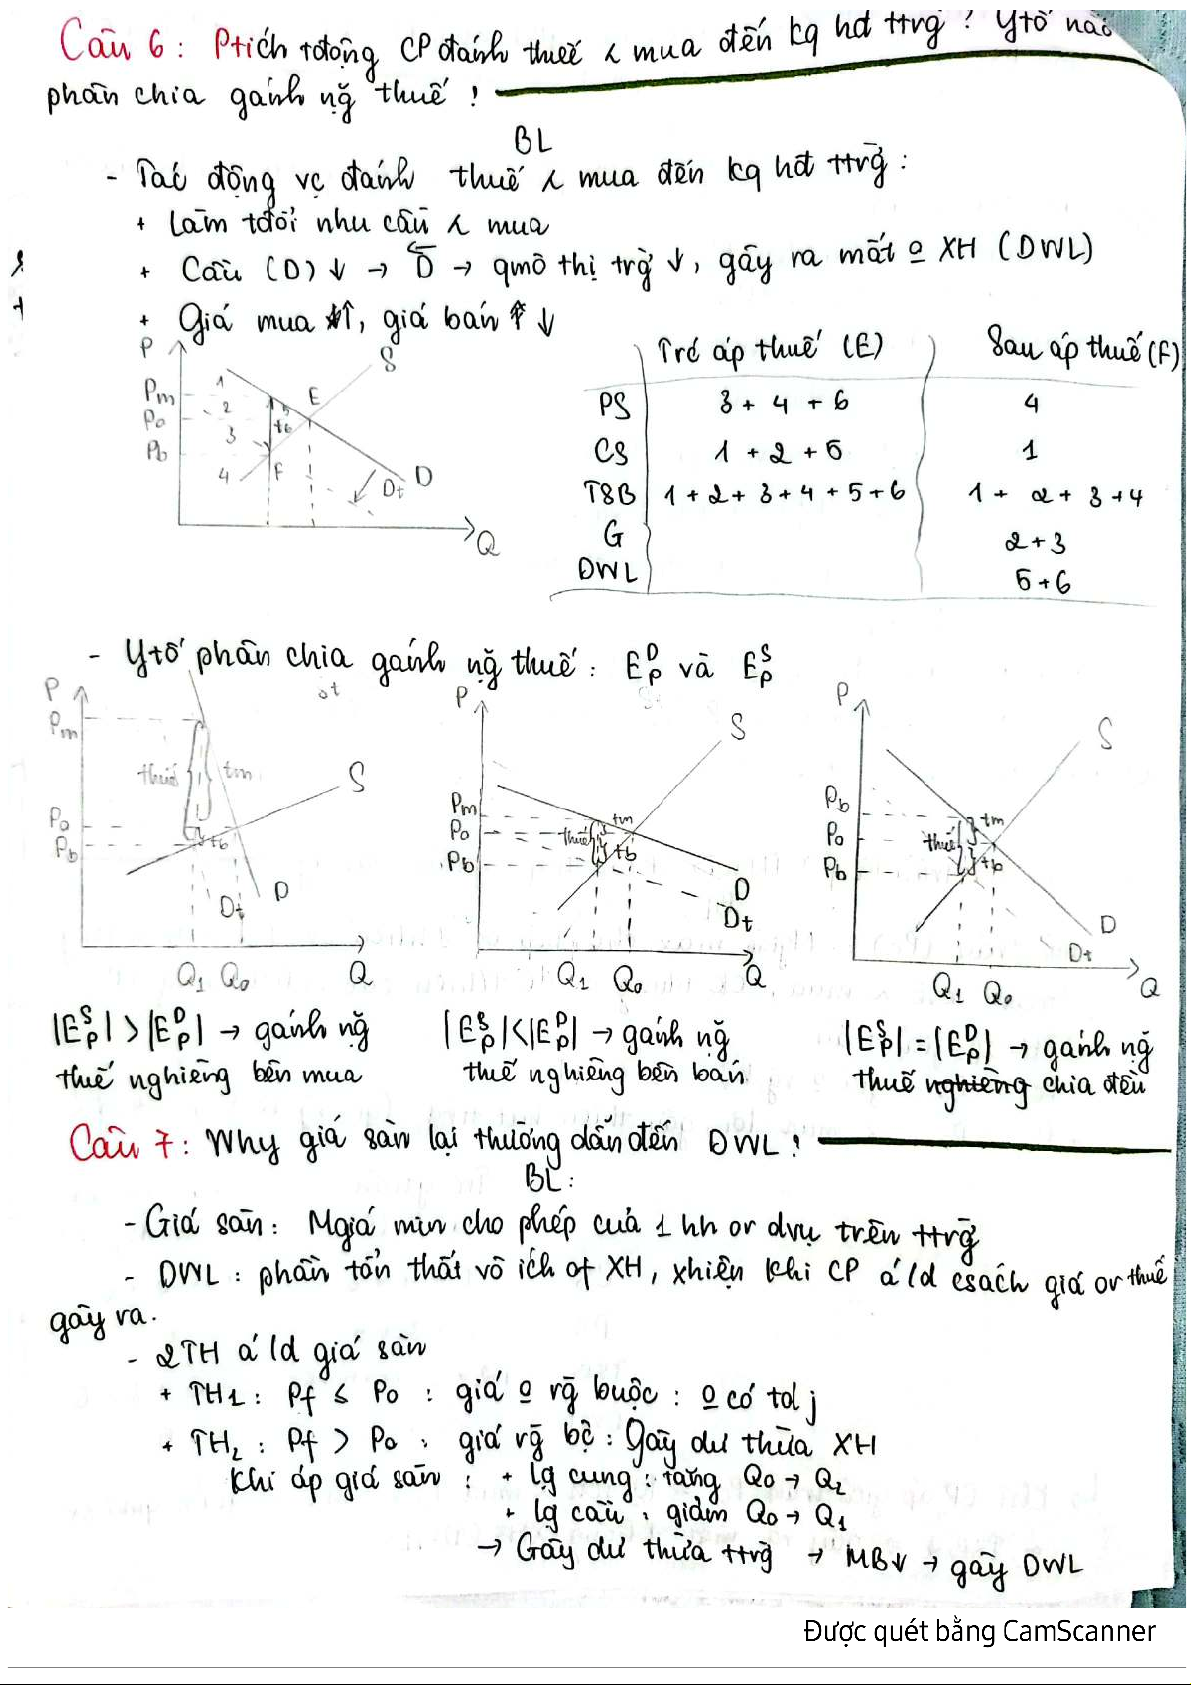 Câu 6: Ptích tđộng CP đánh thuế ng mua đến kq hđ ttrg? Ytố nào
phân chia gánh ng̃ thuế!
BL
- Tác động vc đánh thuế ng mua đến kq hđ ttrg̀:
+ Làm tđổi nhu cầu ng mua
+ Cầu (D) ↓ → D → qmô thị trg̀ ↓, gây ra mất o XH (DWL)
+ Giá mua ↑, giá bán ↓
P
S
Pm
Po
Pb
1
2
3
4
5
E
F
t6
Dt
D
Q
Trc áp thuế (E)
Sau áp thuế (F)
PS 3 + 4 + 6 4
CS 1 + 2 + 5 1
TSB 1 + 2 + 3 + 4 + 5 + 6 1 + 2 + 3 + 4
G 2 + 3
DWL 5 + 6
- Ytố phân chia gánh ng̃ thuế: E_P^D và E_P^S
P
Pm
thuế
tm
S
Po
Pb
tb
Dt
D
Q1 Q0
Q
P
S
Pm
Po
Pb
thuế
tm
tb
D
Dt
Q1 Q0
Q
P
S
Pb
Po
Pb
thuế
tm
tb
D
Dt
Q1 Q0
Q
|E_P^S| > |E_P^D| → gánh ng̃
thuế nghiêng bên mua
|E_P^S| < |E_P^D| → gánh ng̃
thuế nghiêng bên bán
|E_P^S| = |E_P^D| → gánh ng̃
thuế nghiêng chia đều
Câu 7: Why giá sàn lại thường dẫn đến DWL!
BL:
- Giá sàn: Mgiá min cho phép của 1 hh or dvụ trên ttrg̀
- DWL: phần tổn thất vô ích of XH, xhiện khi CP á/d csách giá or thuế
gây ra.
- 2TH á/d giá sàn
+ TH1: Pf ≤ Po : giá o rg̃ buộc: o có tđ j
+ TH2: Pf > Po : giá rg̃ bộc: Gây dư thừa XH
Khi áp giá sàn : + lg cung: tăng Q0 → Q2
+ lg cầu: giảm Q0 → Q1
→ Gây dư thừa ttrg̀ → MB↓ → gây DWL
Được quét bằng CamScanner